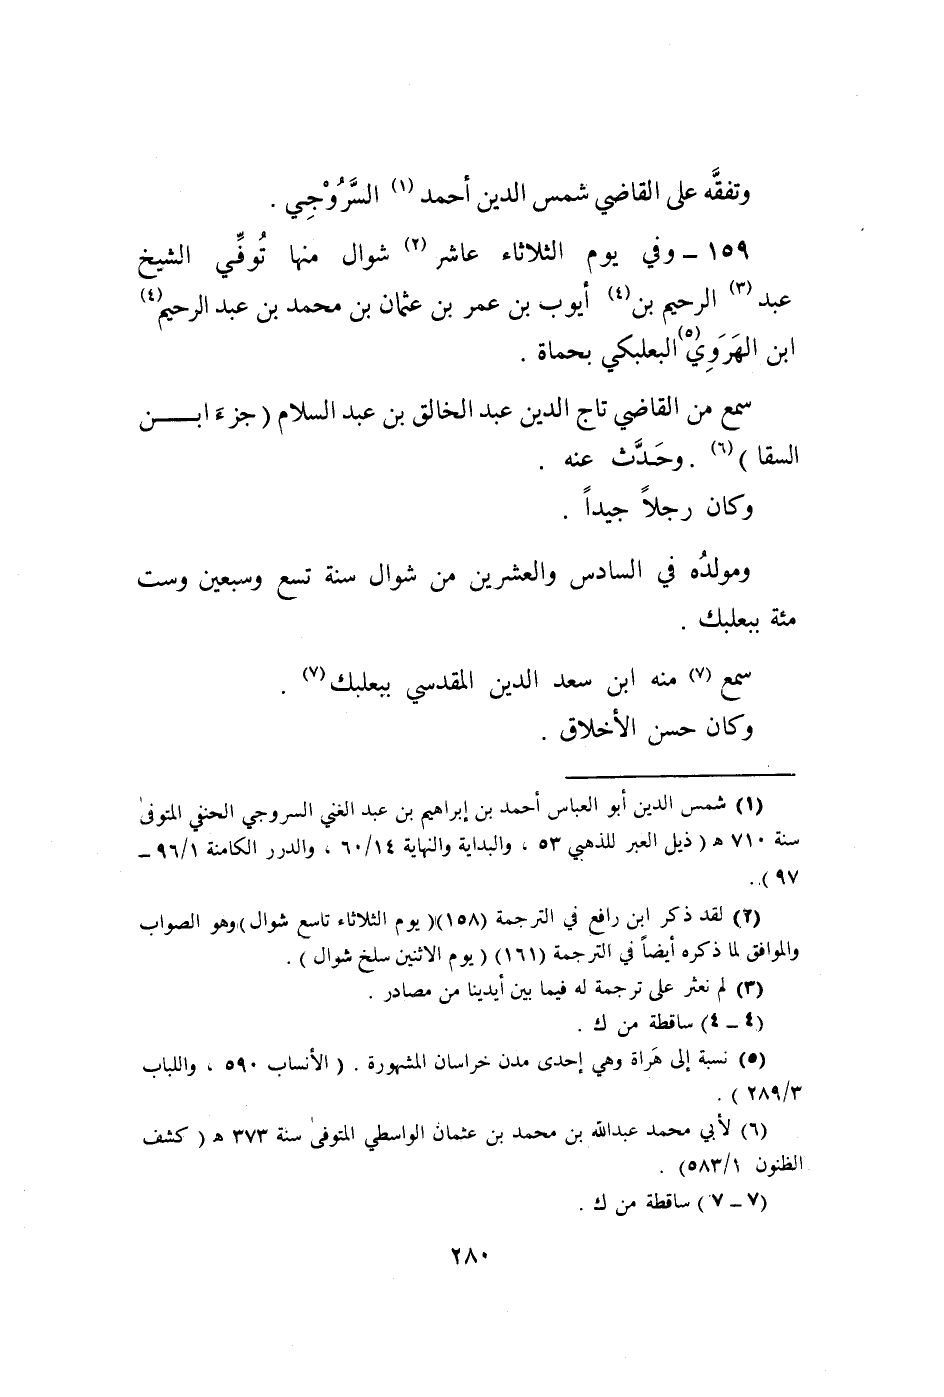 وتفقَّه على القاضي شمس الدين أحمد (١) السَّرُوْجِي .
١٥٩ ــ وفي يوم الثلاثاء عاشر (٢) شوال منها تُوفِّي الشيخ
عبد (٣) الرحيم بن (٤) أيوب بن عمر بن عثمان بن محمد بن عبد الرحيم (٤)
ابن الهَرَوِيّ (٥) البعلبكي بحماة .
سمع من القاضي تاج الدين عبد الخالق بن عبد السلام ( جزء ابـــن
السقا ) (٦) . وحَدَّث عنه .
وكان رجلاً جيداً .
ومولدُه في السادس والعشرين من شوال سنة تسع وسبعين وست
مئة ببعلبك .
سمع (٧) منه ابن سعد الدين المقدسي ببعلبك (٧) .
وكان حسن الأخلاق .
(١) شمس الدين أبو العباس أحمد بن إبراهيم بن عبد الغني السروجي الحنفي المتوفىٰ
سنة ٧١٠ هـ ( ذيل العبر للذهبي ٥٣ ، والبداية والنهاية ٦٠/١٤ ، والدرر الكامنة ٩٦/١ ــ
٩٧ ) .
(٢) لقد ذكر ابن رافع في الترجمة (١٥٨) ( يوم الثلاثاء تاسع شوال ) وهو الصواب
والموافق لما ذكره أيضاً في الترجمة (١٦١) ( يوم الاثنين سلخ شوال ) .
(٣) لم نعثر على ترجمة له فيما بين أيدينا من مصادر .
(٤ ــ ٤) ساقطة من ك .
(٥) نسبة إلى هَراة وهي إحدى مدن خراسان المشهورة . ( الأنساب ٥٩٠ ، واللباب
٢٨٩/٣ ) .
(٦) لأبي محمد عبدالله بن محمد بن عثمان الواسطي المتوفىٰ سنة ٣٧٣ هـ ( كشف
الظنون ٥٨٣/١) .
(٧ ــ ٧) ساقطة من ك .
٢٨٠